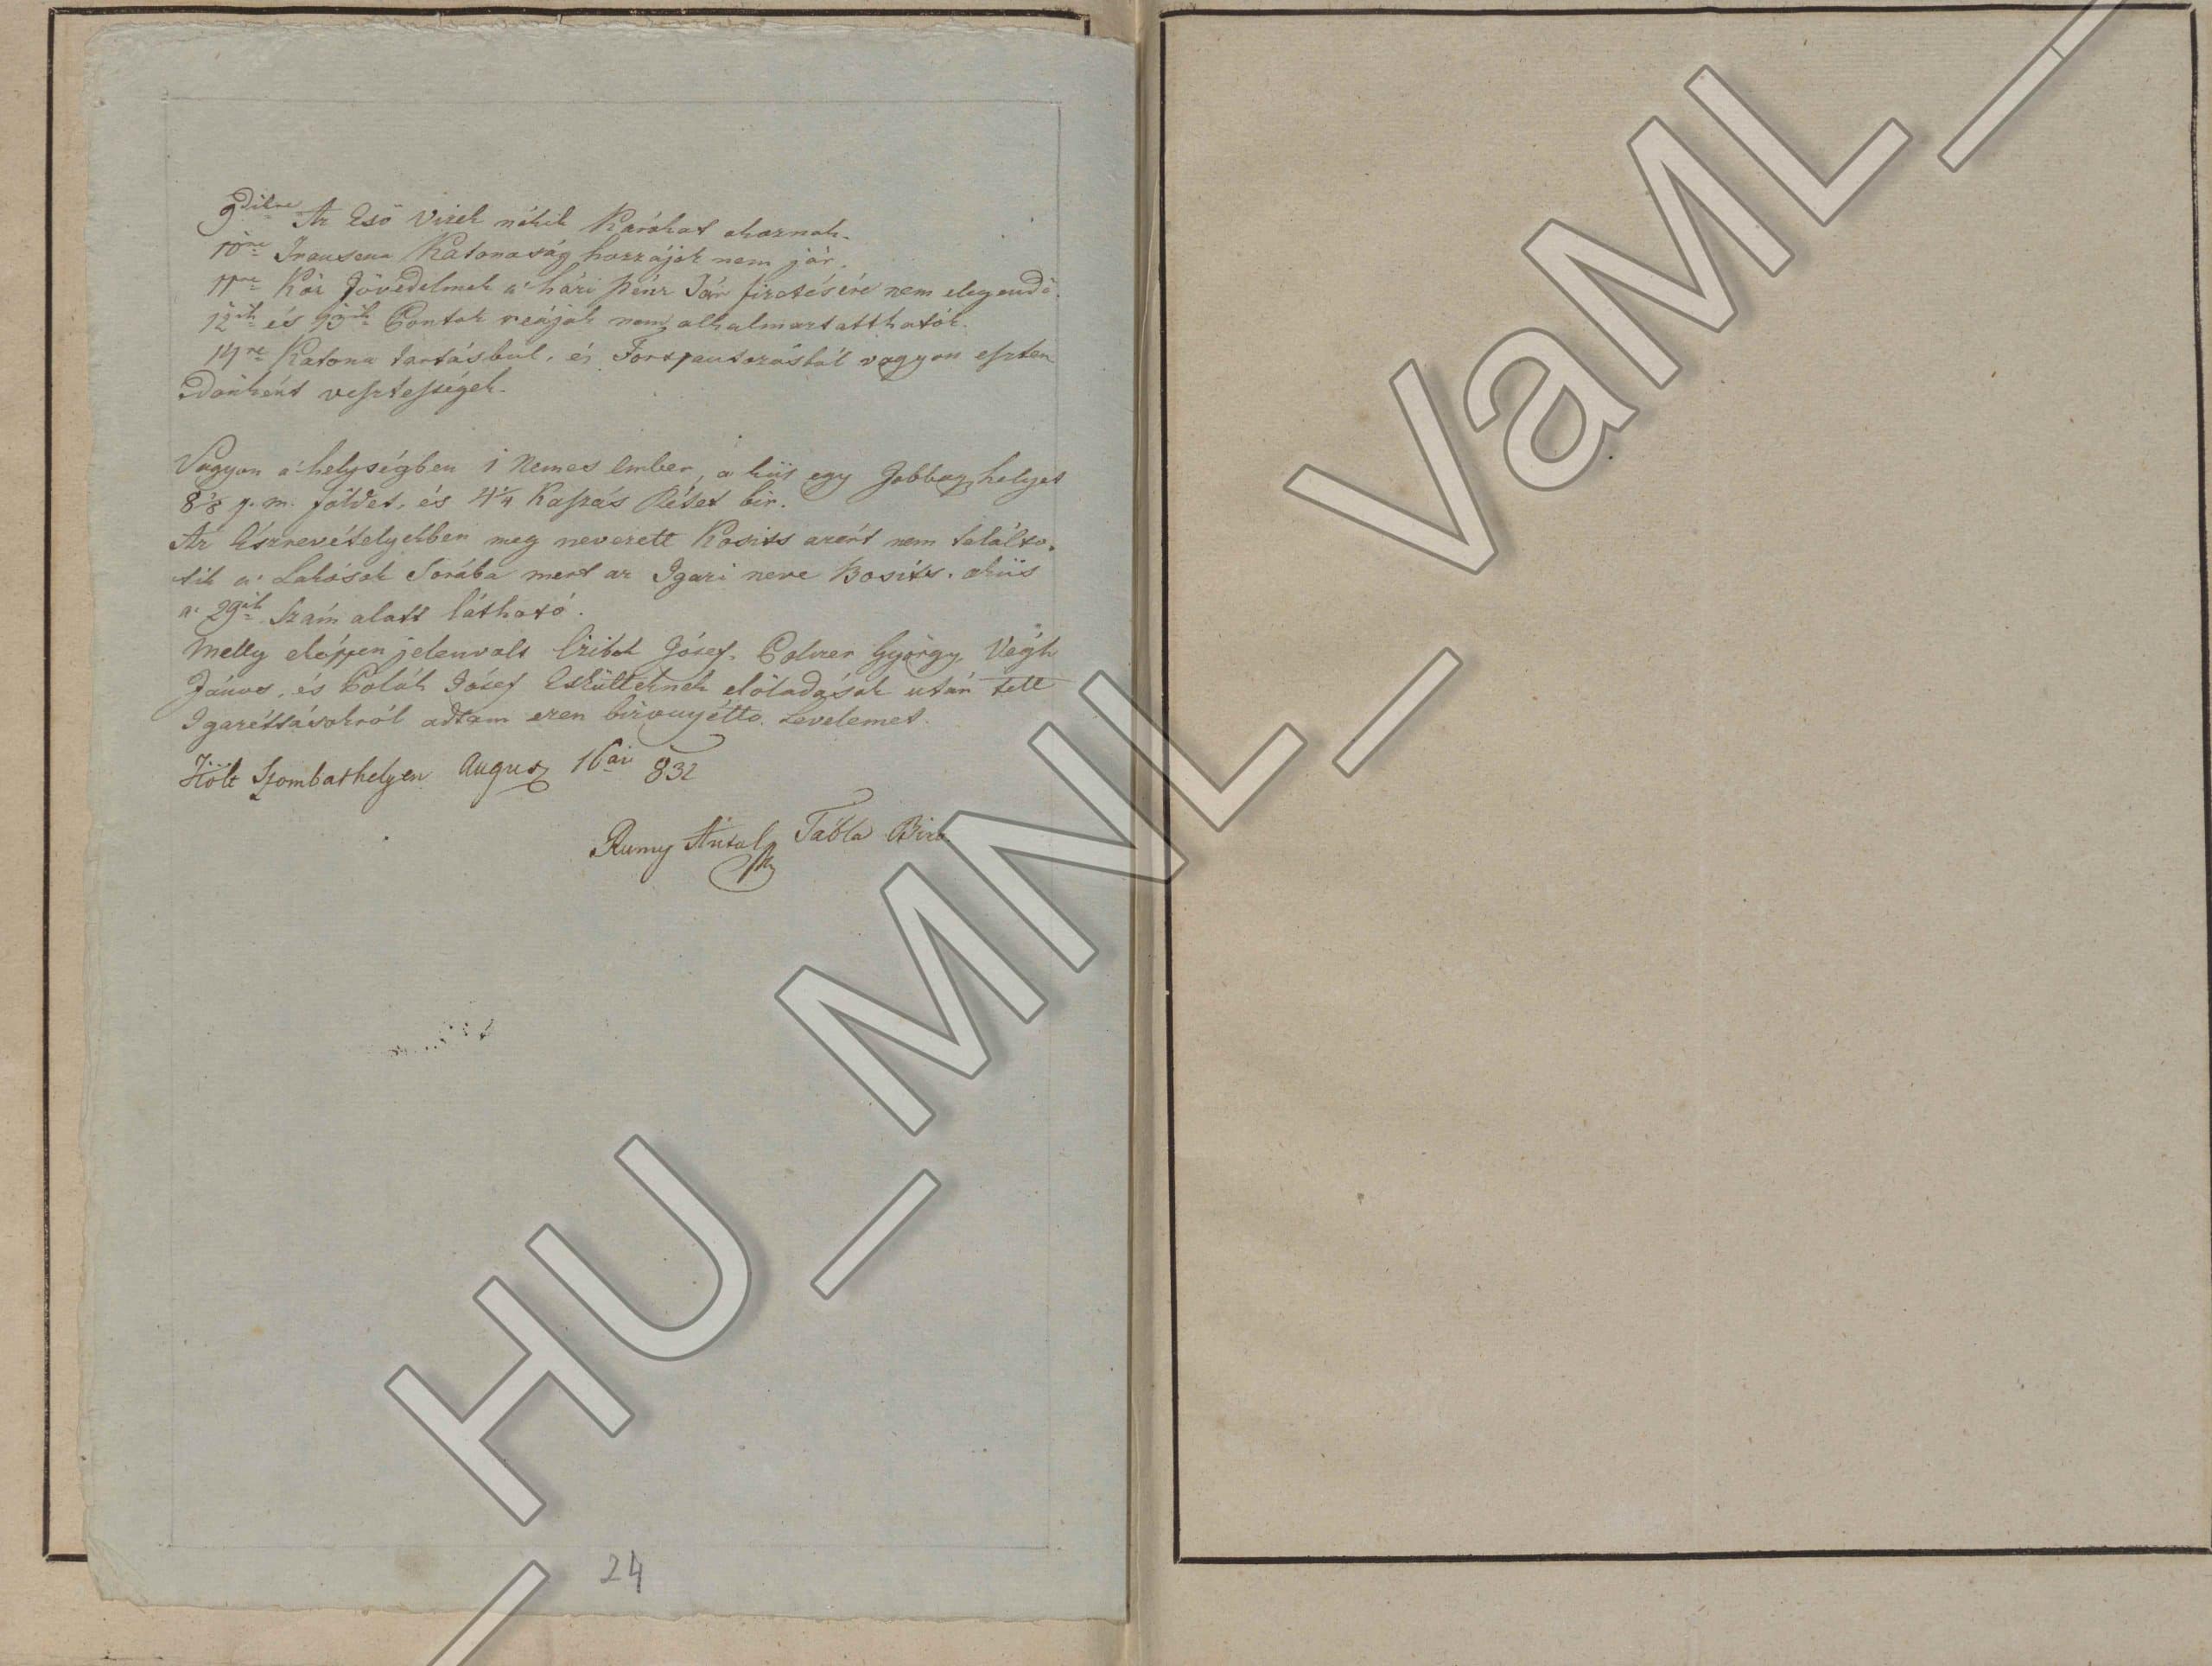 9dikre Az Eső Vizek nékik Károkat okoznak.
10re Transena Katonaság hozzájok nem jár.
11re Köz Jövedelmek a' házi Pénz Tár fizetésére nem elegendő.
12ik és 13ik Pontok reájok nem alkalmaztatthatók.
14re Katona tartásbul, és Forspantozásbúl vagyon eszten
dőnként vesztességek.
Vagyon a' helységben 1 Nemes Ember, a kiis egy Jobbagy helyet
8 1/8 p. m. földet, és 4 1/4 Kaszás Rétet bir.
Az Észrevételyekben meg nevezett Kosits azért nem találta-
tik a' Lakósok Sorába mert az Igazi neve Bosits. akiis
a' 29ik Szám alatt látható.
Melly eképpen jelenvalt József, György, Végh
János, és Polák Jósef Eskütteknek elöladások után tett
Igazéttásokról adtam ezen bizonyétto Levelemet.
Költ Szombathelyen August 16án 832
Rumy Antal mk Tábla Biro
24
HU_MNL_VaML_